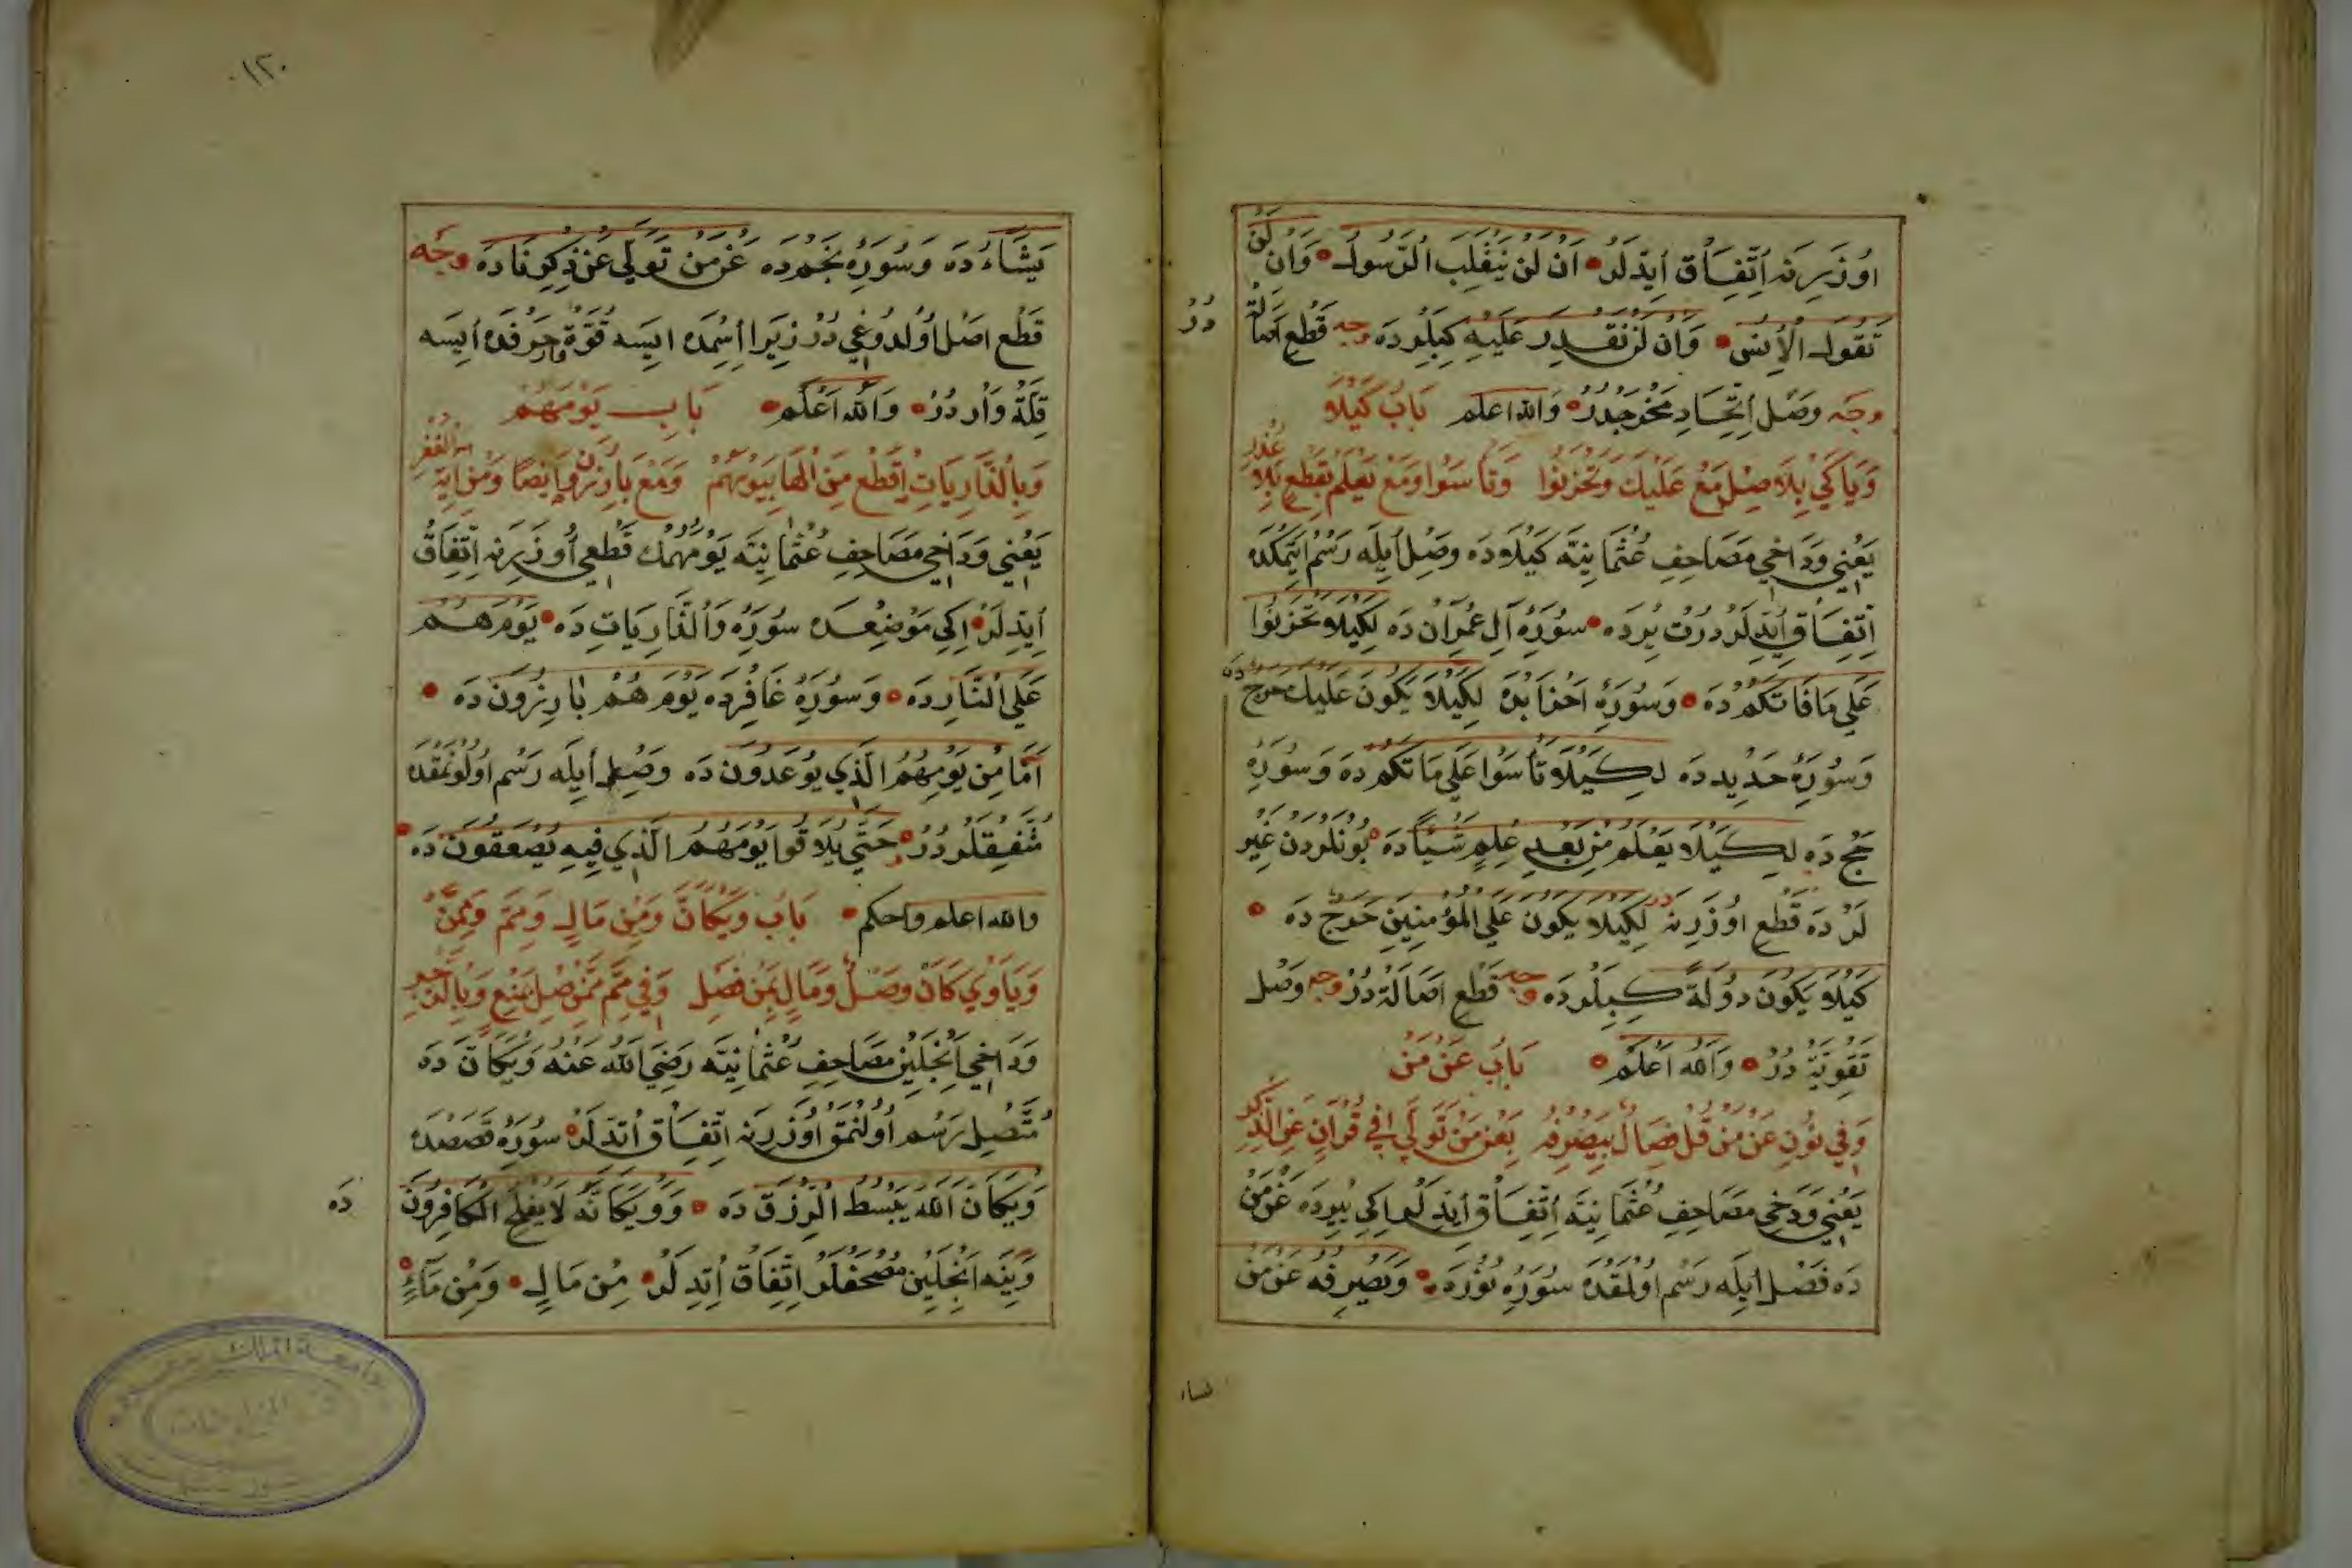 اوُزَرِنه اتِّفِاق اَيِدلَرْ اَنْ لَنْ يَنْقَلِبَ الرَّسُولُ وَاَنْ لَنْ
تَقُولَ الْاِنْسُ وَاَنْ لَنْ نَقْدِرَ عَلَيْهِ كِبِلَرْدَه وجه قَطْع اَصَالَةْ
دُرْ
وجه وَصْل اِتِّحَادِ مَخْرَجْدُرْ وَالله اعلم بَابُ كَيْلَا
وَيَا كَيْ بِلَا صِلْ مَعْ عَلَيْكَ وَتَحْزَنُوا وَتَأْسَوْا وَمَعْ يَعْلَمْ بِقَطْعٍ بِلَا عُذْرِ
يَعْنِي وَدَاخِي مَصَاحِفِ عُثْمَانِيَّه كَيْلَادَه وَصْل اَيلَه رَسْم ايتمكده
اِتِّفِاق اَيدِلَرْ دُرْت يِرْدَه سُورَهِٔ آلِ عِمْرَان دَه لِكَيْلَا تَحْزَنُوا
عَلَى مَا فَاتَكُمْ دَه وَسُورَهِٔ اَحْزَابْدَه لِكَيْلَا يَكُونَ عَلَيْكَ حَرَجٌ دَه
وَسُورَهِٔ حَدِيد دَه لِكَيْلَا تَأْسَوْا عَلَى مَا تكم دَه وَسُورَهِٔ
حَجّ دَه لِكَيْلَا يَعْلَمَ مِنْ بَعْدِ عِلْمٍ شَيْئًا دَه بُونلَردن غَيْرِ
لَرْ دَه قَطْع اوُزَرِنه دُر لِكَيْلَا يَكُونَ عَلَى الْمُؤْمِنِينَ حَرَجٌ دَه
كَيْلَا يَكُونَ دُولَةً كِبِلَرْدَه وجه قَطْع اَصَالَةْ دُرْ وجه وَصْل
تَقْوِيَةْ دُرْ وَالله اَعْلَمْ بَابُ عَنْ مَنْ
وَفِي نُونِ عَنْ مَنْ قُلْ فِصَالُ بِيَصْرِفُهُ بِعَنْ مَنْ تَوَلَّى فِي قُرْآنٍ عَنِ الذِّكْرِ
يَعْنِي وَدَخِي مَصَاحِفِ عُثْمَانِيَّه اِتِّفَاق اَيدِلَر اِكِي يِيرْدَه عَنْ مَنْ
دَه فَصْل اَيلَه رَسْم اوُلمَقْدَه سُورَهِٔ نُورْدَه وَيَصْرِفُهُ عَنْ مَنْ
نساء
١٢٠
يَشَاءُ دَه وَسُورَهِٔ نَجْمدَه عَنْ مَنْ تَوَلَّى عَنْ ذِكْرِنَا دَه وجه
قَطْع اصْل اُولدُوغِي دُرْ زِيرَا اِسِمْدَه ايسَه قُوَّة وار حَرْفدَه اَيسَه
قِلَّة وَارْ دُرْ وَالله اَعْلَم بَابِ يَوْمَهُمْ
وَبِالذَّارِيَاتِ اقْطَعْ مِنَ الْهَا بِيَوْمَهُمْ وَمَعْ بَارِزُون اَيْضًا
يَعْنِي وَدَاخِي مَصَاحِفِ عُثْمَانِيَّه يَوْمَهُمْك قَطْعِي اُوزَرِنه اِتِّفَاقْ
اَيِدِلَرْ اِكِي مَوْضِعْدَه سُورَهِٔ وَالذَّارِيَاتِ دَه يَوْمَ هُمْ
عَلَى النَّارِدَه وَسُورَهِٔ غَافِردَه يَوْمَ هُمْ بَارِزُونَ دَه
اَمَّا مِنْ يَوْمِهِمُ الَّذِي يُوعَدُونَ دَه وَصْل اَيلَه رَسْم اُولُونمَقْدَه
مُتَّفِقْلَرْدُرْ حَتَّى يُلَاقُوا يَوْمَهُمُ الَّذِي فِيهِ يُصْعَقُونَ دَه
والله اعلم واحكم بَابُ وَيْكَاَنَّ وَمِنْ مَالِ وَمِمَّ وَمِمَّنْ
وَيَا وَيْ كَاَنْ وَصْلٌ وَمَالِ بِمِنْ فُصِل وَفِي مِمَّ مِمَّنْ صِلْ
وَدَاخِي اَنْجِلَيِنْ مَصَاحِفِ عُثْمَانِيَّه رَضِيَ اللهُ عَنْهُ وَيْكَاَنَّ دَه
مُتَّصِل رَسْم اُولُنْمَق اُوزَرِنه اتِّفَاق اَتدِلَرْ سُورَهِٔ قَصَصْدَه
وَيْكَاَنَّ اللهَ يَبْسُطُ الرِّزْقَ دَه وَوَيْكَاَنَّهُ لَا يُفْلِحُ الْكَافِرُونَ
دَه
وَيِنَه اَنْجِلَيِنْ مُصْحَفْلَر اِتِّفَاقْ اَتدِلَرْ مِنْ مَالِ وَمِنْ مَآءٍ
جامعة الملك سعود
قسم المخطوطات